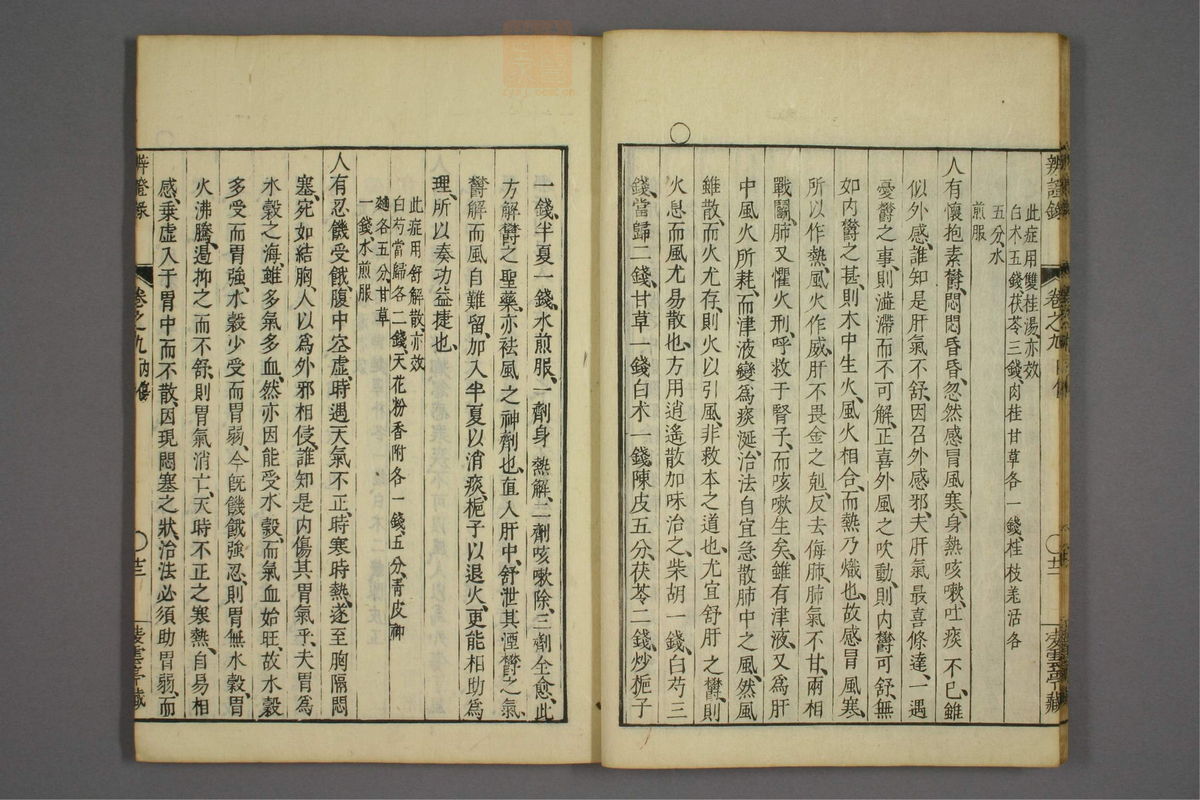 辨證錄 卷之九 凌雲亭藏
此症用雙桂湯亦效
白术五錢茯苓三錢肉桂甘草各一錢桂枝羌活各
五分水
煎服
人有懷抱素欝悶悶昏昏忽然感冒風寒身熱咳嗽吐痰不已雖
似外感誰知是肝氣不舒因召外感邪夫肝氣最喜條達一遇
憂欝之事則澁滯而不可解正喜外風之吹動則內欝可舒無
如內欝之甚則木中生火風火相合而熱乃熾也故感冒風寒
所以作熱風火作威肝不畏金之剋反去侮肺肺氣不甘兩相
戰鬭肺又懼火刑呼救于腎子而咳嗽生矣雖有津液又爲肝
中風火所耗而津液變爲痰涎治法自宜急散肺中之風然風
雖散而火尤存則火以引風非救本之道也尤宜舒肝之欝則
火息而風尤易散也方用逍遥散加味治之柴胡一錢白芍三
錢當歸二錢甘草一錢白术一錢陳皮五分茯苓二錢炒梔子
一錢半夏一錢水煎服一劑身熱解二劑咳嗽除三劑全愈此
方解欝之聖藥亦袪風之神劑也直入肝中舒泄其湮欝之氣
欝解而風自難留加入半夏以消痰梔子以退火更能相助爲
理所以奏功益捷也
此症用舒解散亦效
白芍當歸各二錢天花粉香附各一錢五分青皮神
麯各五分甘草
一錢水煎服
人有忍饑受餓腹中空虛時遇天氣不正時寒時熱遂至胸隔悶
塞宛如結胸人以爲外邪相侵誰知是內傷其胃氣乎夫胃爲
水穀之海雖多氣多血然亦因能受水穀而氣血始旺故水穀
多受而胃強水穀少受而胃弱今既饑餓強忍則胃無水穀胃
火沸騰遏抑之而不舒則胃氣消亡天時不正之寒熱自易相
感乘虛入于胃中而不散因現悶塞之狀治法必須助胃弱而
辨證錄 卷之九 內傷 凌雲亭藏